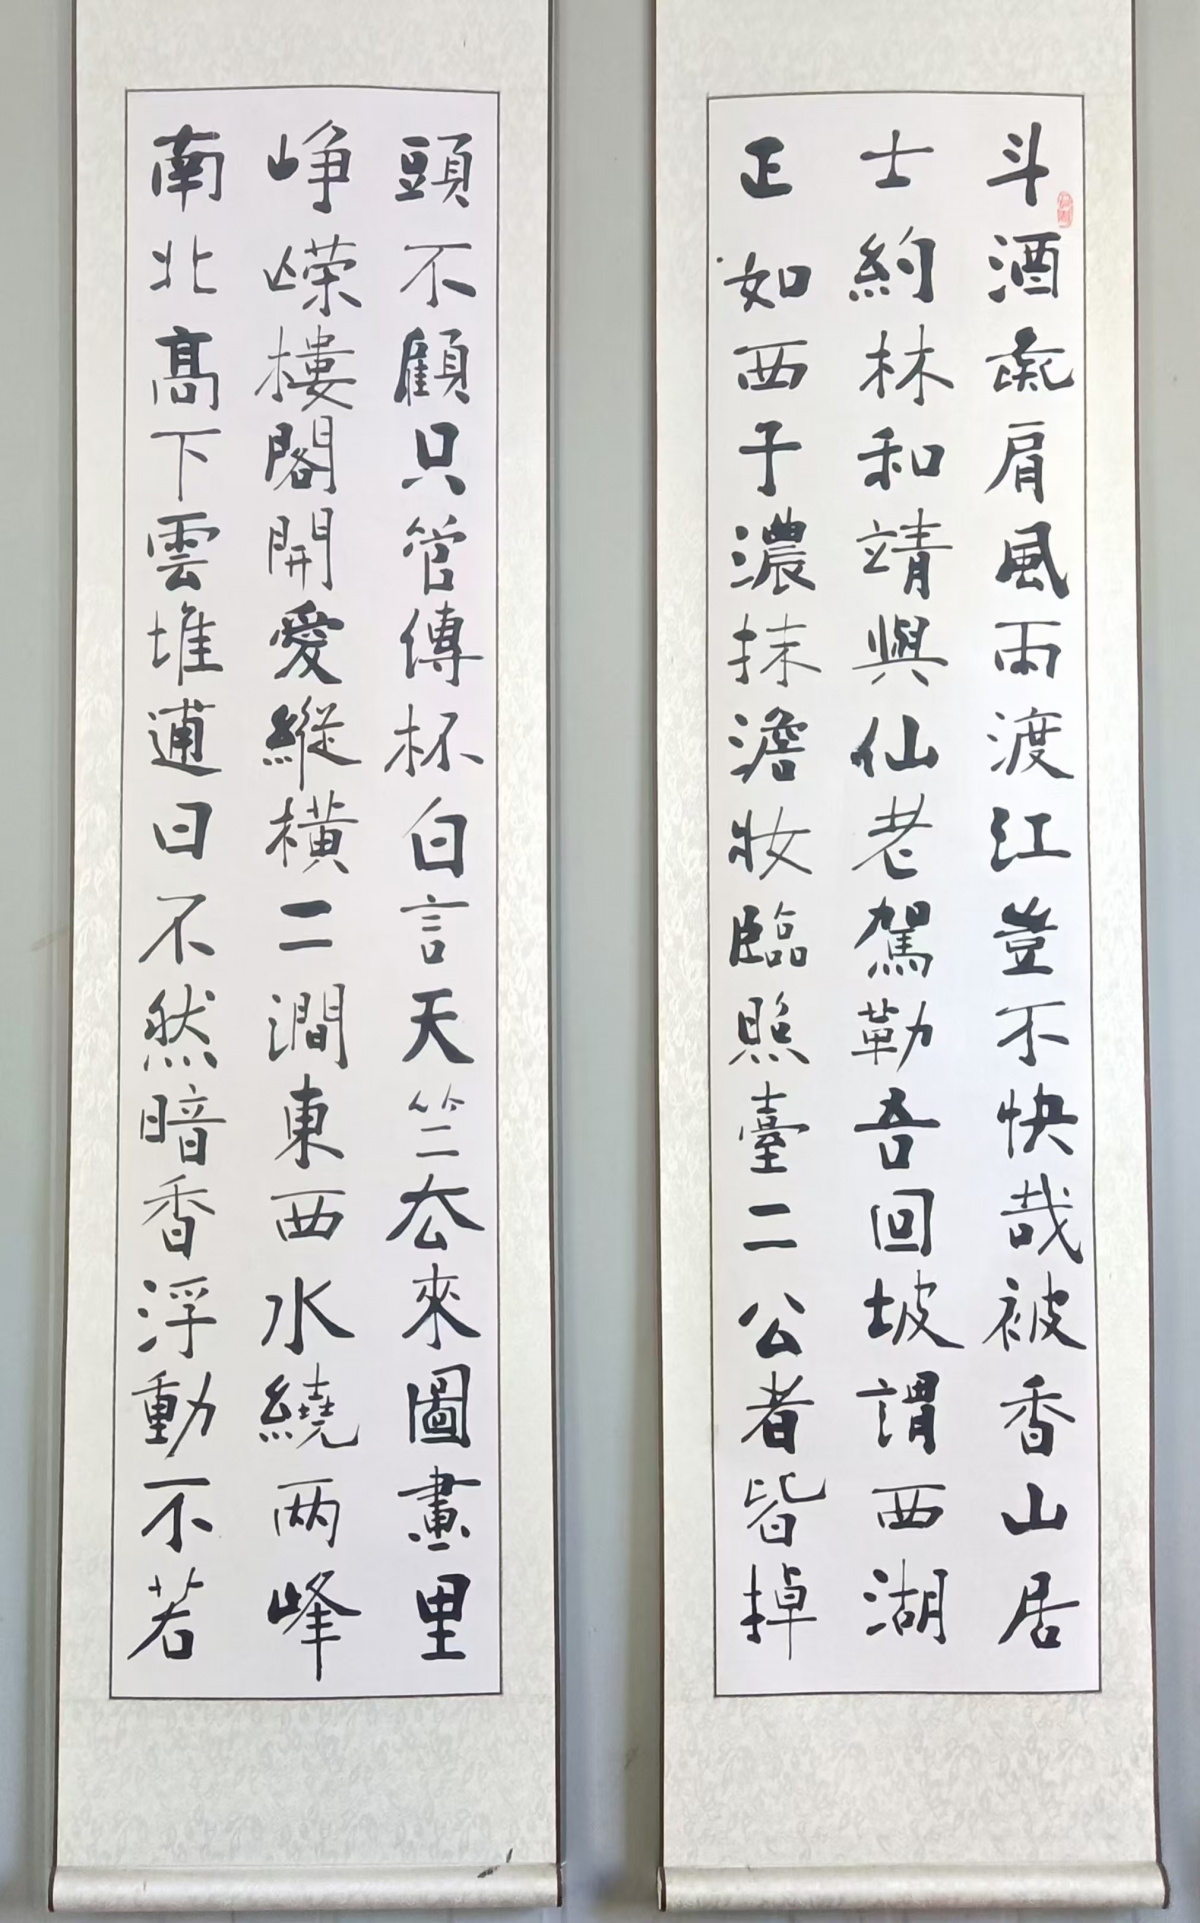 斗酒彘肩風雨渡江豈不快哉被香山居
士約林和靖與仙老駕勒吾回坡謂西湖
正如西子濃抹澹妝臨照臺二公者皆掉
頭不顧只管傳杯白言天竺厺來圖畫里
崢嶸樓閣開愛縱橫二澗東西水繞兩峰
南北高下雲堆逋曰不然暗香浮動不若